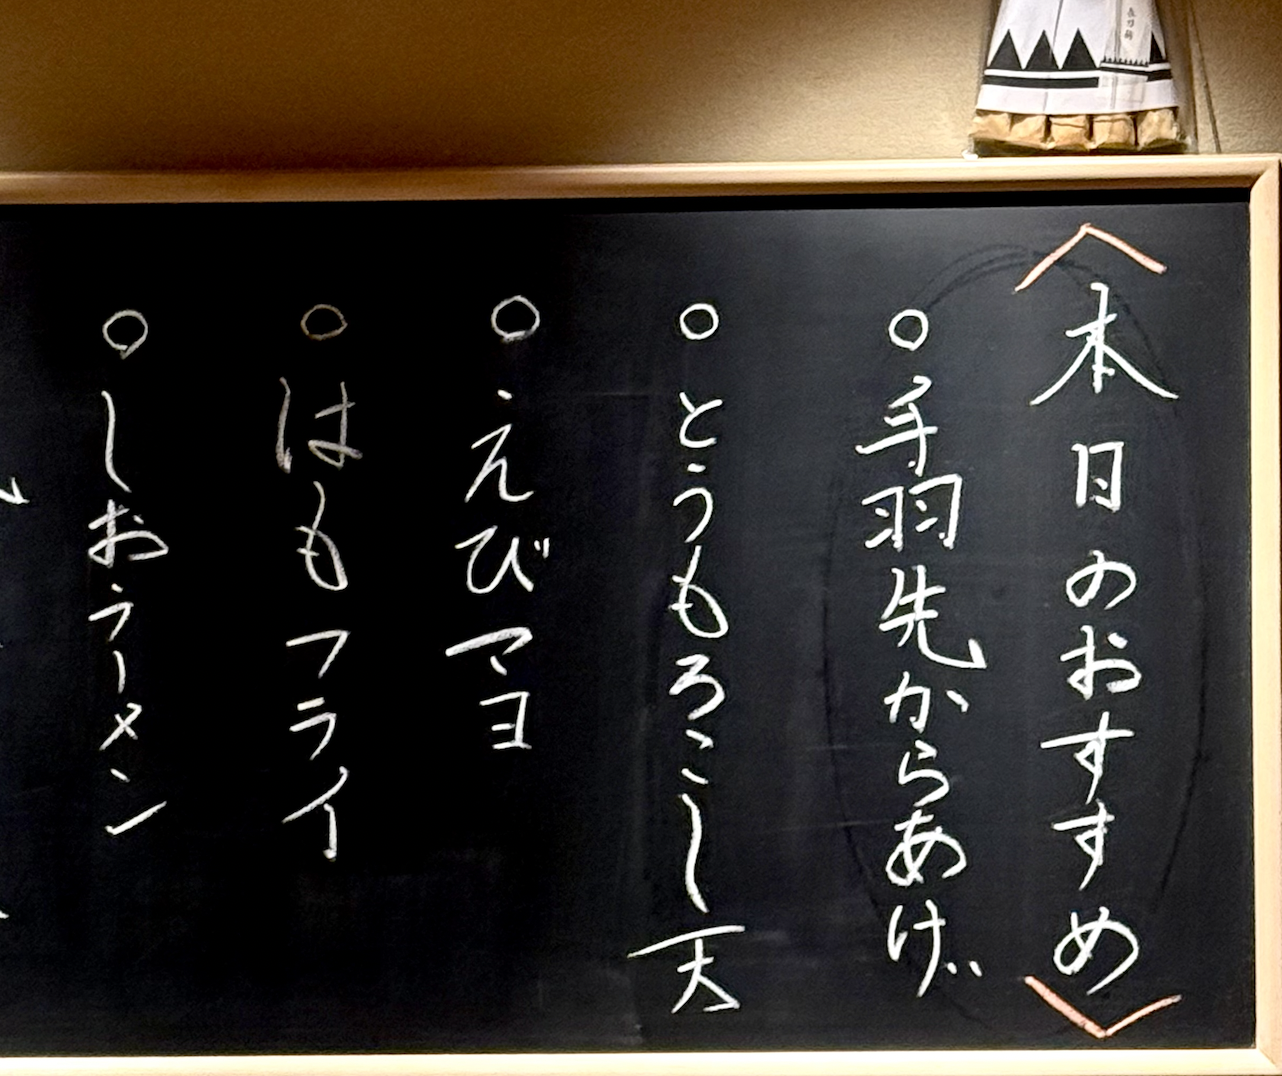 〈本日のおすすめ〉
○手羽先からあげ
○とうもろこし天
○えびマヨ
○はもフライ
○しおラーメン